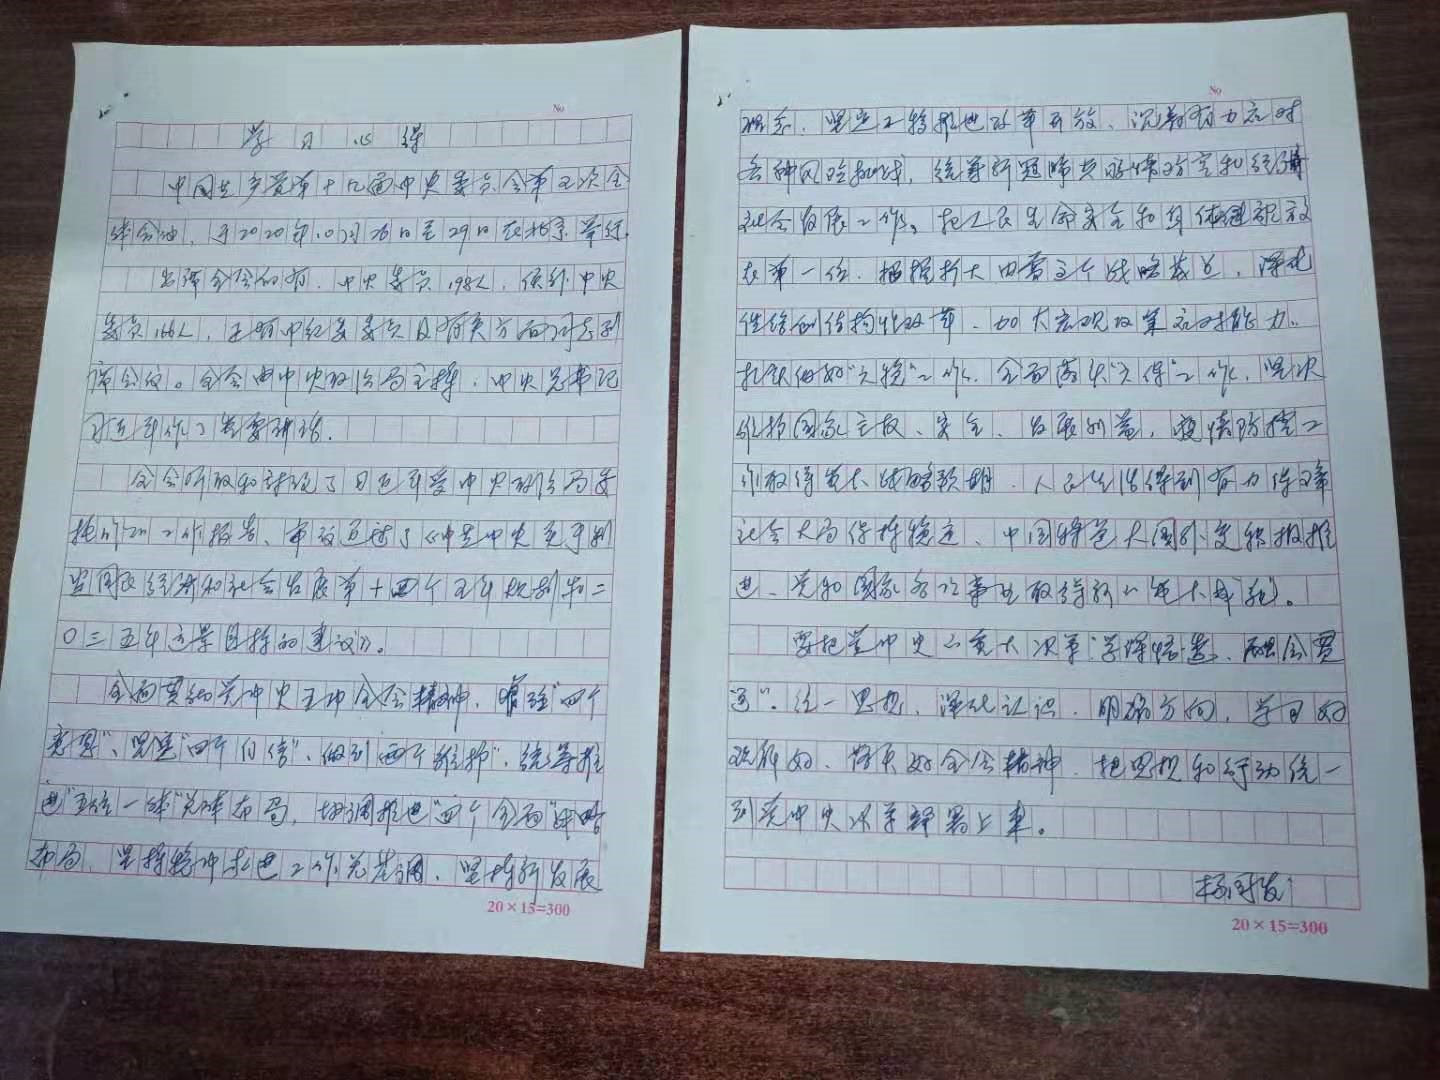 No
学习心得
中国共产党第十九届中央委员会第五次全
体会议，于2020年10月26日至29日在北京举行。
出席全会的有，中央委员198人，候补中央
委员166人，还有中纪委委员及有关方面同志列
席会议。全会由中央政治局主持，中央总书记
习近平作了重要讲话。
全会听取和讨论了习近平受中央政治局委
托所作的工作报告、审议通过了《中共中央关于制
定国民经济和社会发展第十四个五年规划和二
〇三五年远景目标的建议》。
全面贯彻党中央五中全会精神，增强"四个
意识"、坚定"四个自信"、做到"两个维护"，统筹推
进"五位一体"总体布局，协调推进"四个全面"战略
布局、坚持稳中求进工作总基调、坚持新发展
20×15=300
No
理念、坚定不移推进改革开放、沉着有力应对
各种风险挑战，统筹新冠肺炎疫情防控和经济
社会发展工作。把人民生命安全和身体健康放
在第一位，把握扩大内需这个战略基点，深化
供给侧结构性改革、加大宏观政策应对能力。
扎实做好"六稳"工作、全面落实"六保"工作、坚决
维护国家主权、安全、发展利益，疫情防控工
作取得重大战略预期、人民生活得到有力保障
社会大局保持稳定、中国特色大国外交积极推
进、党和国家各项事业取得新的重大成就。
要把党中央的重大决策"学深悟透、融会贯
通"。统一思想、深化认识、明确方向，学习好
理解好、落实好全会精神、把思想和行动统一
到党中央决策部署上来。
杨国发
20×15=300